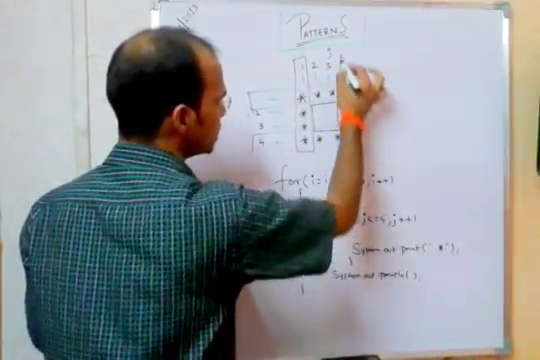 /2013
PATTERNS
j
1 2 3
* * *
2 *
3 *
4 * * *
for(i=1 ,i++)
{
j<=4,j++)
System out print(" *"),
}
System out println( ),
}